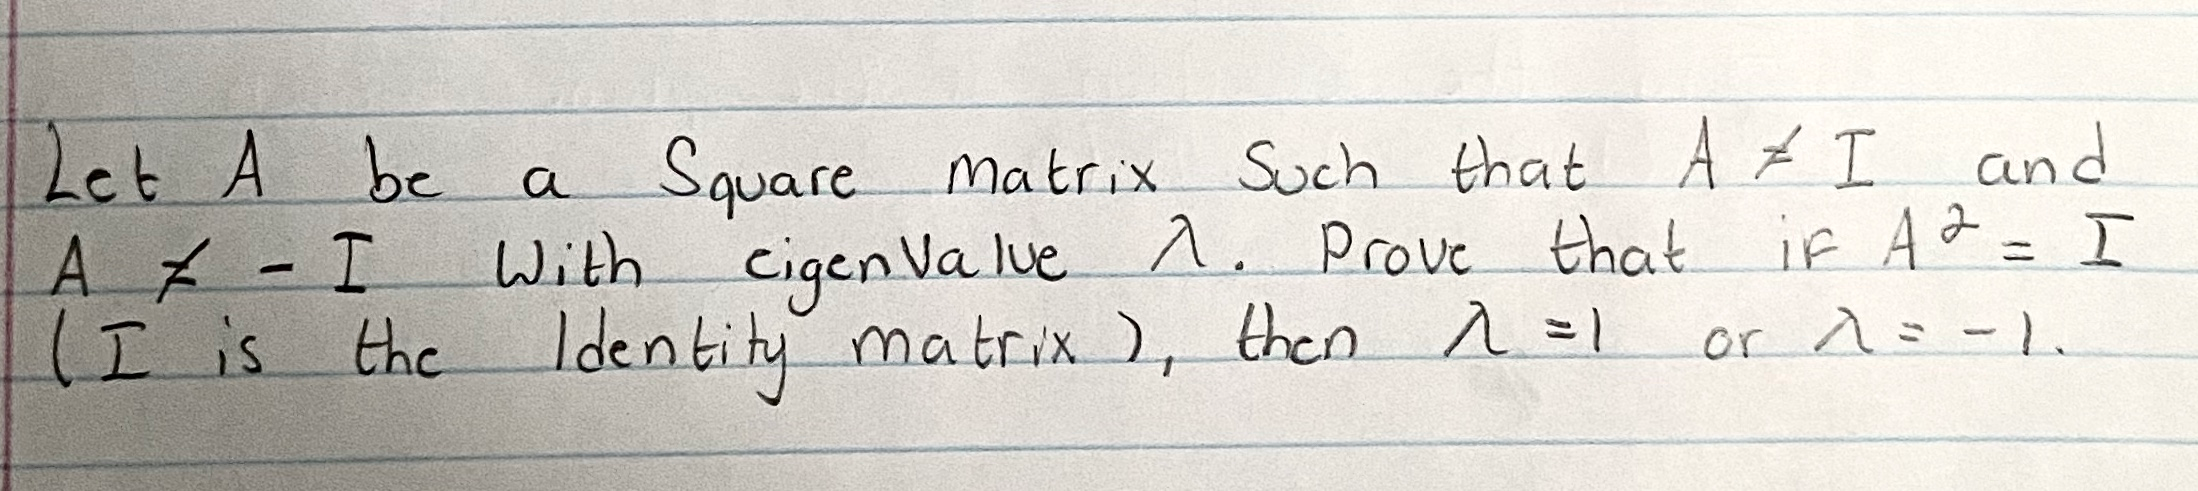 Let A be a Square matrix Such that A ≠ I and
A ≠ - I With eigenValue λ. Prove that if A² = I
(I is the Identity matrix), then λ =1 or λ = -1.